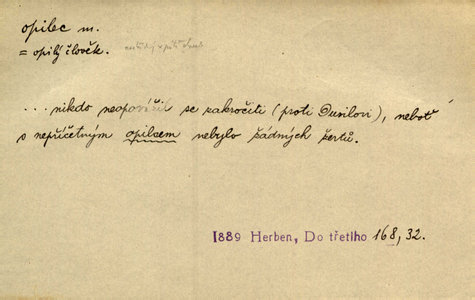 opilec m.
= opilý člověk.
... nikdo neopovážil se zakročiti (proti Dusilovi), neboť
s nepříčetným opilcem nebylo žádných žertů.
1889 Herben, Do třetího 168, 32.